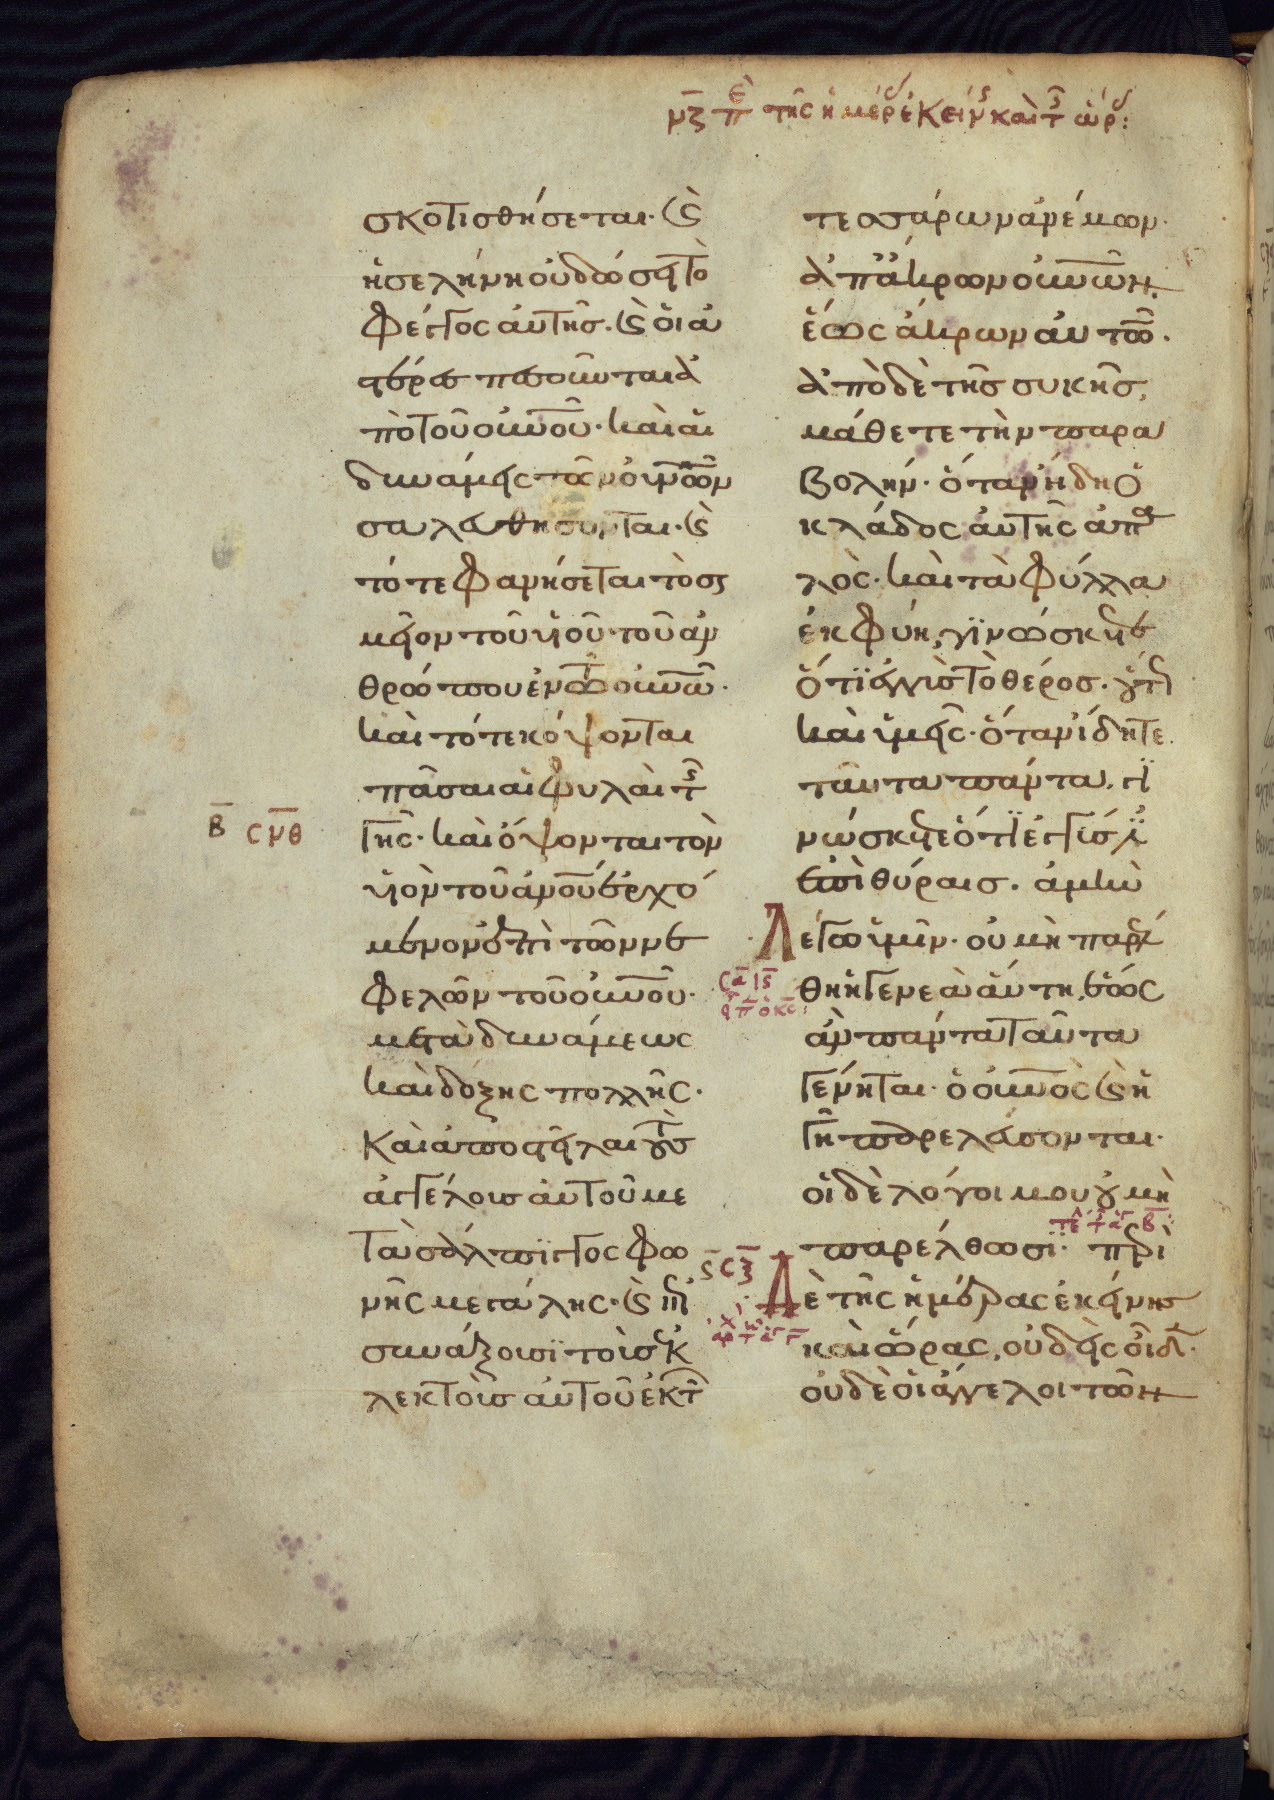 μζ πε της ημερ εκειν και τ ωρ:
σκοτισθήσεται· καὶ
ἡ σελήνη οὐ δώσει τὸ
φέγγος αὐτῆς· καὶ οἱ ἀ
στέρες πεσοῦνται ἀ
πὸ τοῦ οὐνοῦ· καὶ αἱ
δυνάμεις τῶν οὐνῶν
σαλευθήσονται· καὶ
τότε φανήσεται τὸ ση
μεῖον τοῦ υἱοῦ τοῦ ἀν
θρώπου ἐν τῶ οὐνῶ·
καὶ τότε κόψονται
πᾶσαι αἱ φυλαὶ τῆς
Β Cνθ
γῆς· καὶ ὄψονται τὸν
υἱὸν τοῦ ἀνοῦ ἐρχό
μενον ἐπὶ τῶν νε
φελῶν τοῦ οὐνοῦ·
μετὰ δυνάμεως
καὶ δόξης πολλῆς·
Καὶ ἀποστελεῖ τοὺς
ἀγγέλους αὐτοῦ με
τὰ σάλπιγγος φω
νῆς μεγάλης· καὶ ἐπι
συνάξουσϊ τοὺς ἐκ
λεκτοὺς αὐτοῦ ἐκ τῶν
τεσσάρων ἀνέμων·
ἀπ' ἄκρων οὐνῶν
ἕως ἄκρων αὐτῶν·
ἀπὸ δὲ τῆς συκῆς,
μάθετε τὴν παρα
βολήν· ὅταν ἤδη ὁ
κλάδος αὐτῆς ἁπα
λὸς· καὶ τὰ φύλλα
ἐκφύη, γϊνώσκετε
ὅτϊ ἐγγὺς τὸ θέρος· οὕτω
καὶ ὑμεῖς· ὅταν ἴδητε
ταῦτα πάντα, γϊ
νώσκετε ὅτϊ ἐγγύς ἐ
στϊν ἐπὶ θύραις· ἀμὴν
Λέγω ὑμῖν· οὐ μὴ παρέλ
Cα
θη ἡ γενεὰ αὕτη, ἕως
ἂν πάντα ταῦτα
γένηται· ὁ οὐνὸς καὶ ἡ
γῆ παρελεύσονται·
οἱ δὲ λόγοι μου οὐ μὴ
παρέλθωσϊ· περὶ
Cξ
Δὲ τῆς ἡμέρας ἐκείνης
καὶ ὥρας, οὐδεὶς οἶδεν·
οὐδὲ οἱ ἄγγελοι τῶν